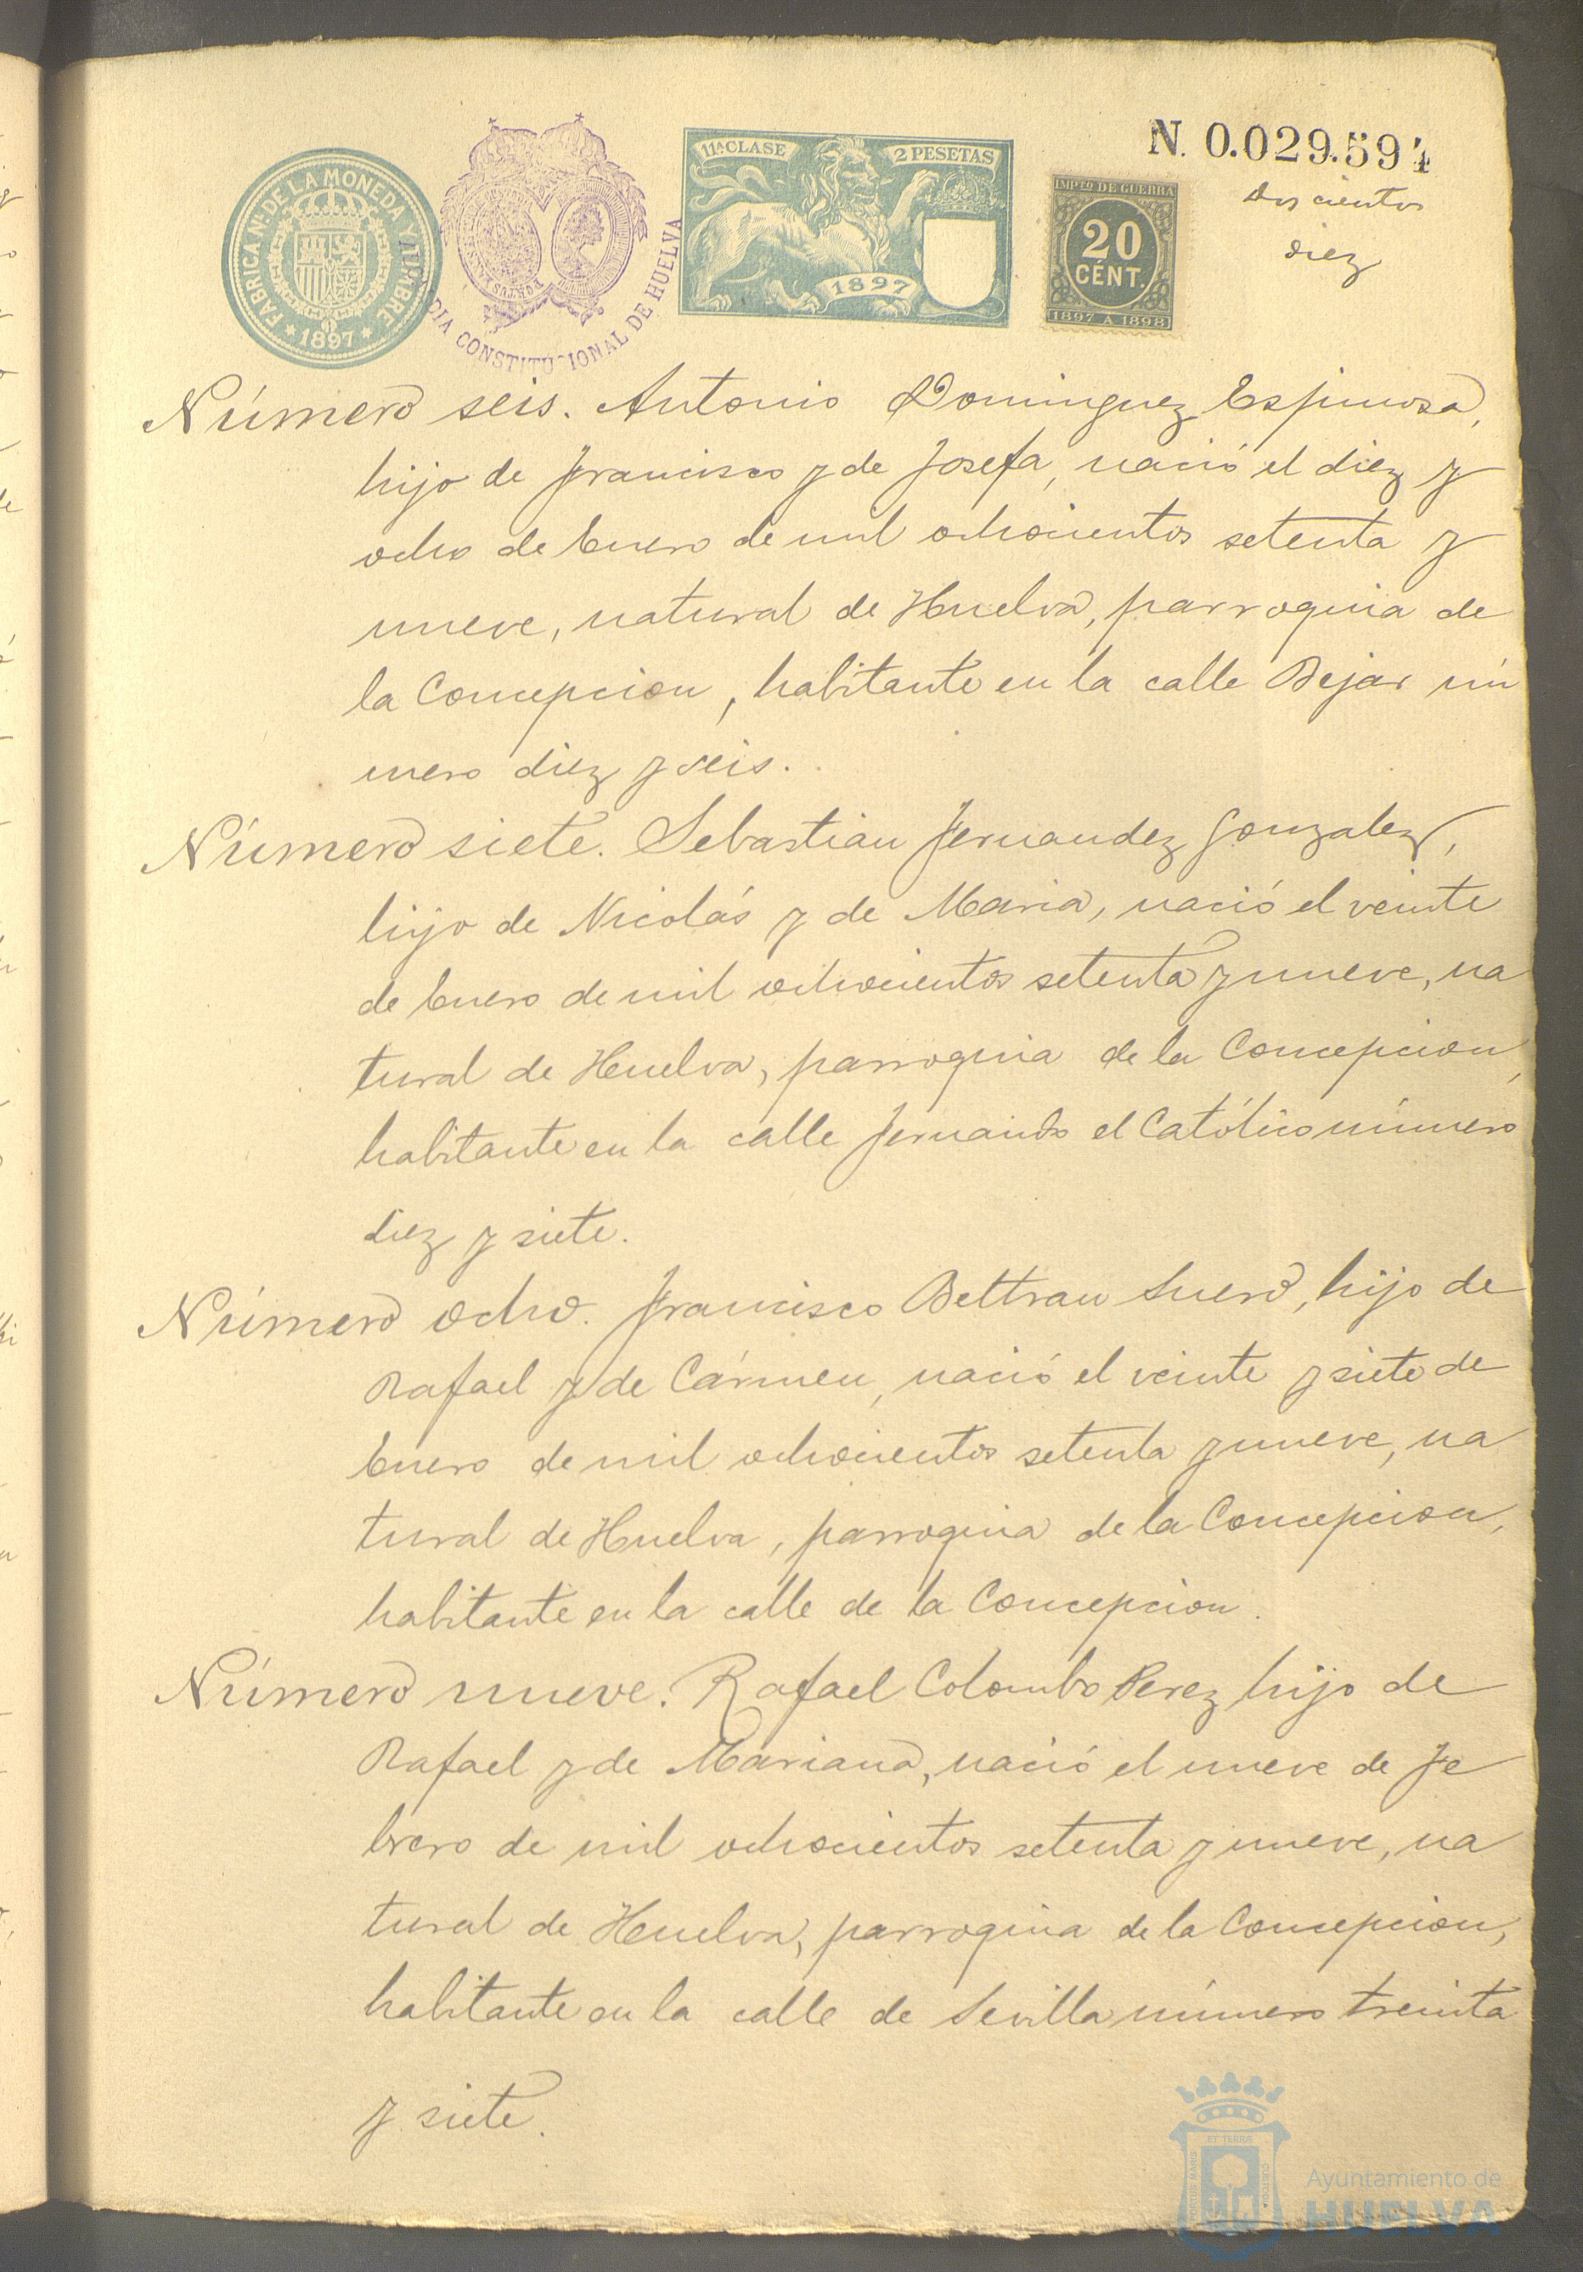 FABRICA Nal. DE LA MONEDA Y TIMBRE
* 1897 *
CONSTITUCIONAL DE HUELVA
11ª CLASE
2 PESETAS
1897
IMPTO DE GUERRA
20
CÉNT.
1897 A 1898
N. 0.029.594
Doscientos
diez
Número seis. Antonio Dominguez Espinosa,
hijo de Francisco y de Josefa, nació el diez y
ocho de Enero de mil ochocientos setenta y
nueve, natural de Huelva, parroquia de
la Concepcion, habitante en la calle Bejar nú
mero diez y seis.
Número siete. Sebastian Fernandez Gonzalez,
hijo de Nicolás y de Maria, nació el veinte
de Enero de mil ochocientos setenta y nueve, na
tural de Huelva, parroquia de la Concepcion,
habitante en la calle Fernando el Católico número
diez y siete.
Número ocho. Francisco Beltran Suero, hijo de
Rafael y de Cármen, nació el veinte y siete de
Enero de mil ochocientos setenta y nueve, na
tural de Huelva, parroquia de la Concepcion,
habitante en la calle de la Concepcion.
Número nueve. Rafael Colombo Perez hijo de
Rafael y de Mariana, nació el nueve de Fe
brero de mil ochocientos setenta y nueve, na
tural de Huelva, parroquia de la Concepcion,
habitante en la calle de Sevilla número treinta
y siete.
Ayuntamiento de
HUELVA